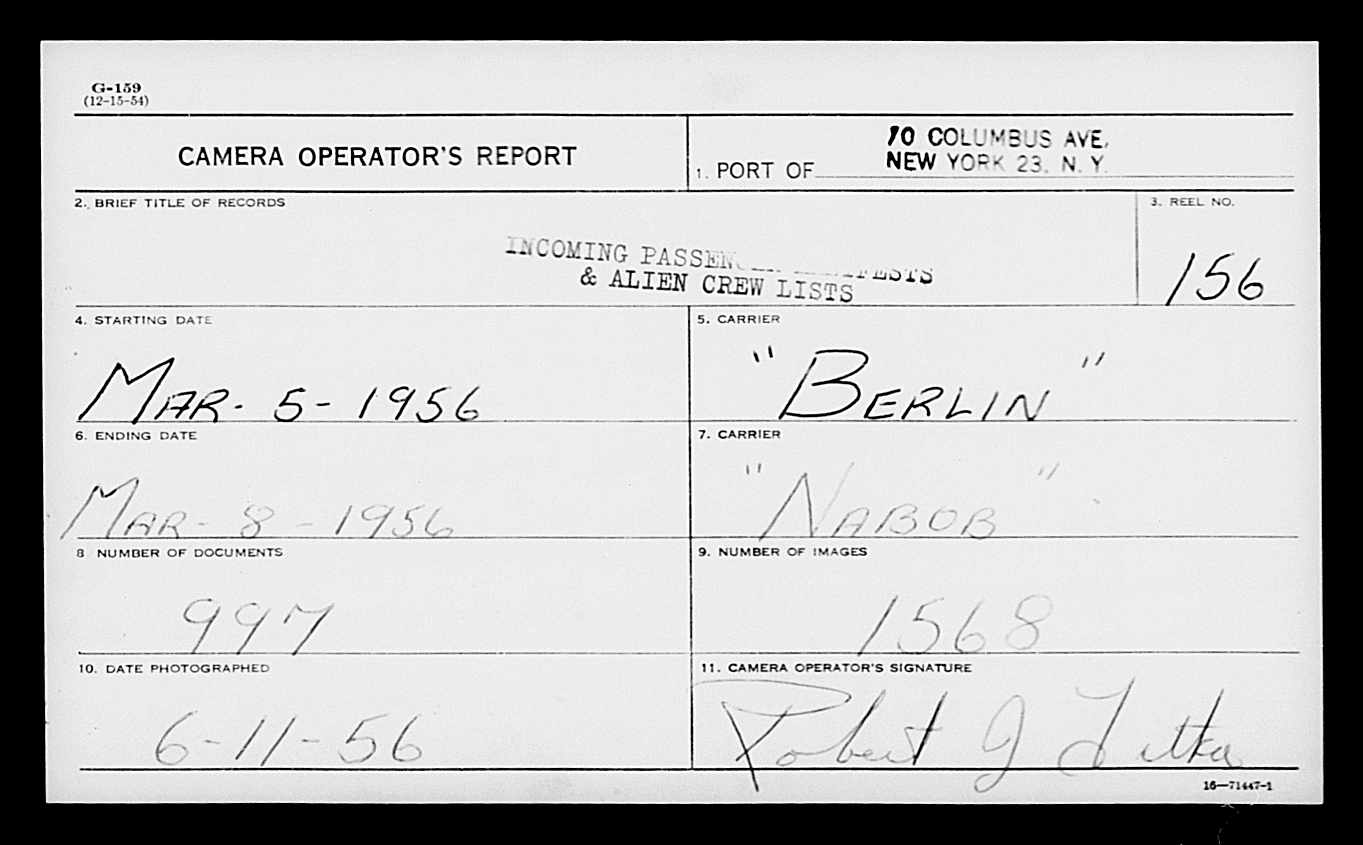 G-159
(12-15-54)
CAMERA OPERATOR'S REPORT
1. PORT OF
70 COLUMBUS AVE,
NEW YORK 23, N. Y.
2. BRIEF TITLE OF RECORDS
INCOMING PASSEN
& ALIEN CREW LISTS
3. REEL NO.
156
4. STARTING DATE
MAR- 5- 1956
5. CARRIER
"BERLIN"
6. ENDING DATE
MAR- 8 - 1956
7. CARRIER
"NABOB"
8 NUMBER OF DOCUMENTS
997
9. NUMBER OF IMAGES
1568
10. DATE PHOTOGRAPHED
6-11-56
11. CAMERA OPERATOR'S SIGNATURE
Robert J
16—71447-1